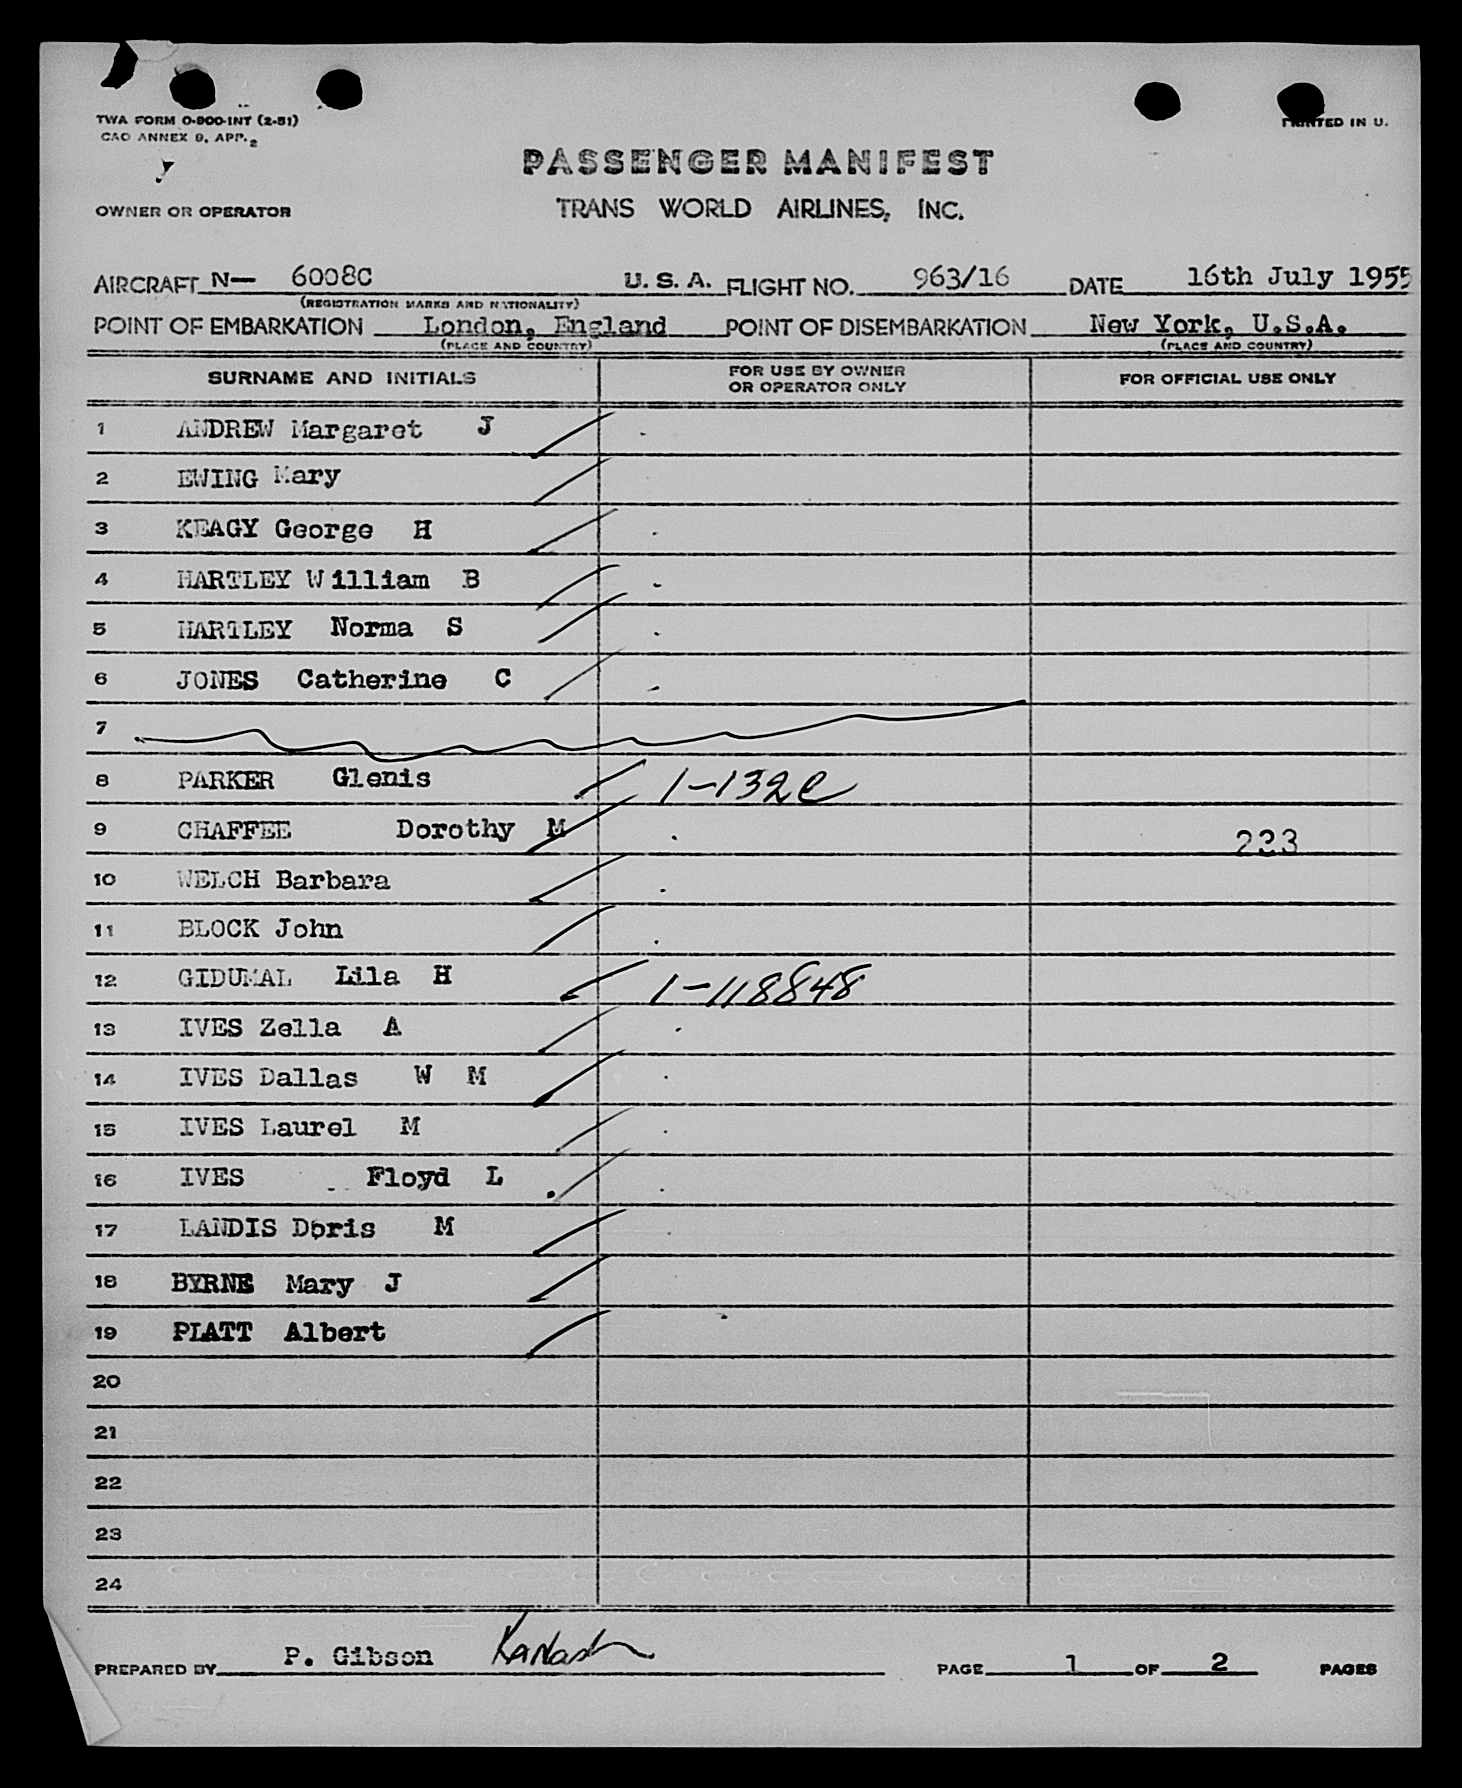 TWA FORM O-900-INT (2-51)
CAO ANNEX 9, APP. 2
PRINTED IN U.
PASSENGER MANIFEST
OWNER OR OPERATOR
TRANS WORLD AIRLINES, INC.
AIRCRAFT N— 6008C U. S. A. FLIGHT NO. 963/16 DATE 16th July 1955
(REGISTRATION MARKS AND NATIONALITY)
POINT OF EMBARKATION London, England POINT OF DISEMBARKATION New York, U.S.A.
(PLACE AND COUNTRY) (PLACE AND COUNTRY)
SURNAME AND INITIALS FOR USE BY OWNER OR OPERATOR ONLY FOR OFFICIAL USE ONLY
1 ANDREW Margaret J
2 EWING Mary
3 KEAGY George H
4 HARTLEY William B
5 HARTLEY Norma S
6 JONES Catherine C
7
8 PARKER Glenis 1-132
9 CHAFFEE Dorothy M 233
10 WELCH Barbara
11 BLOCK John
12 GIDUMAL Lila H 1-118848
13 IVES Zella A
14 IVES Dallas W M
15 IVES Laurel M
16 IVES Floyd L
17 LANDIS Doris M
18 BYRNE Mary J
19 PLATT Albert
20
21
22
23
24
PREPARED BY P. Gibson PAGE 1 OF 2 PAGES